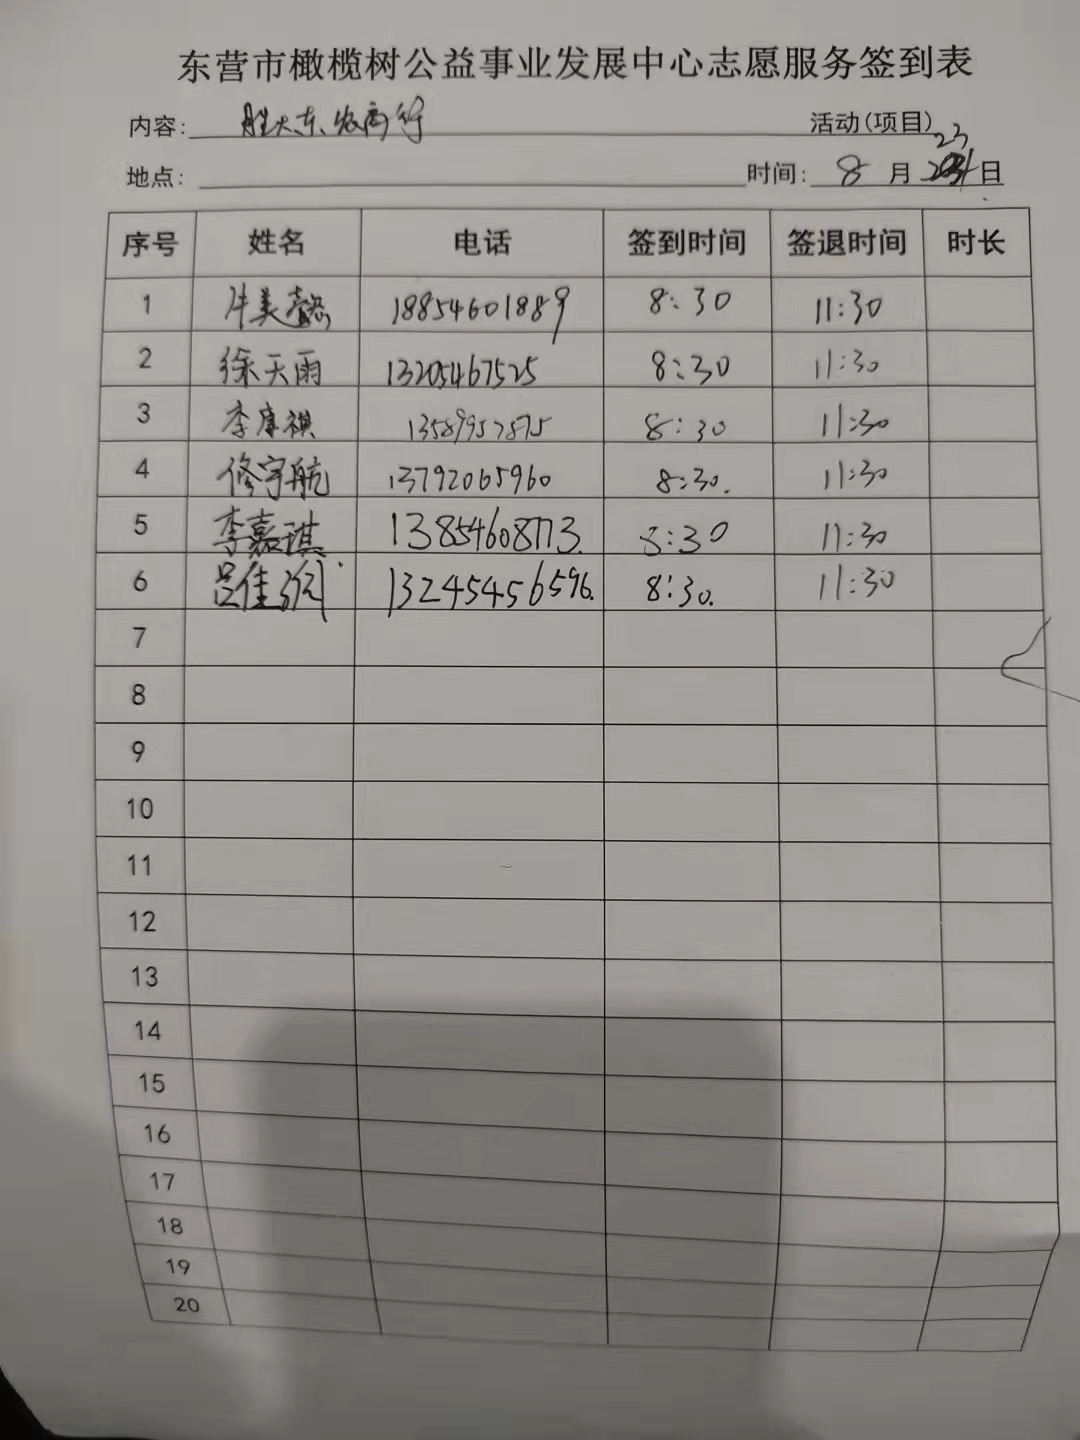 东营市橄榄树公益事业发展中心志愿服务签到表
内容: 胜大东、农商行 活动(项目)
地点: 时间: 8 月 23 日
序号 姓名 电话 签到时间 签退时间 时长
1 牛美懿 18854601889 8:30 11:30
2 徐天雨 13205467525 8:30 11:30
3 李康祺 13589957875 8:30 11:30
4 修宇航 13792065960 8:30. 11:30
5 李嘉琪 13854608773. 8:30 11:30
6 吕佳 13245456596. 8:30. 11:30
7
8
9
10
11
12
13
14
15
16
17
18
19
20